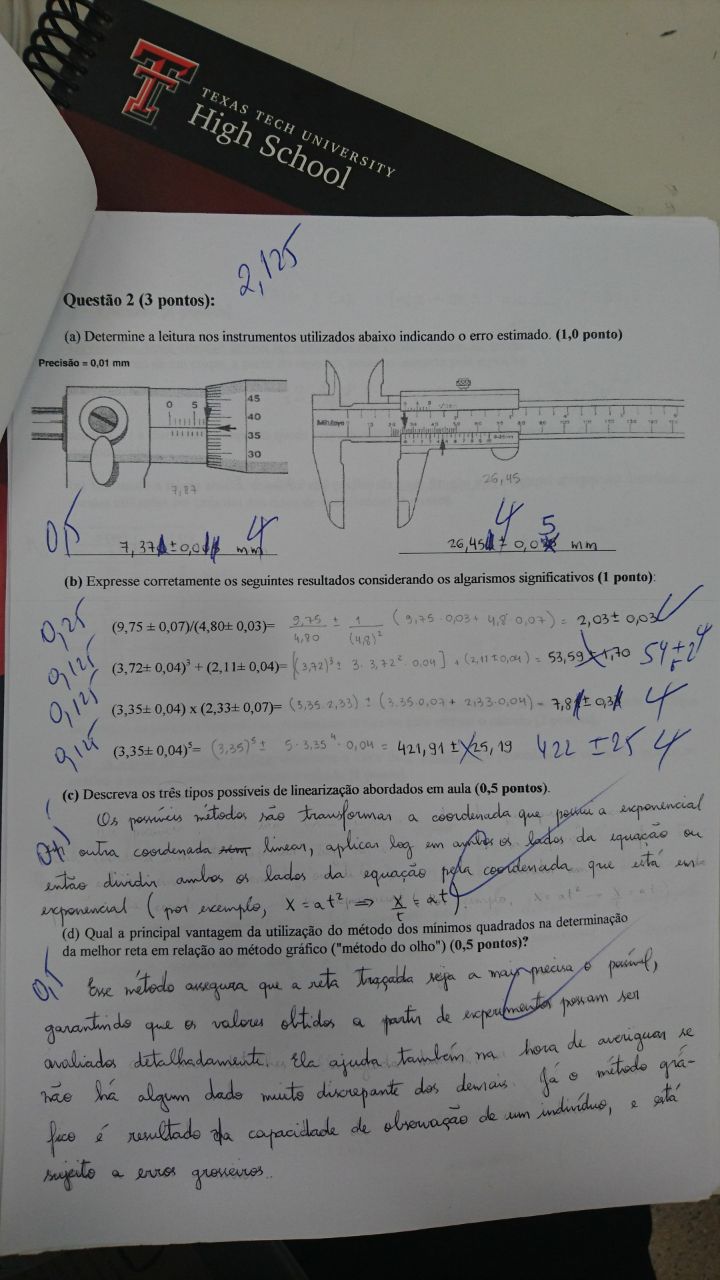 TEXAS TECH UNIVERSITY
High School
2,125
Questão 2 (3 pontos):
(a) Determine a leitura nos instrumentos utilizados abaixo indicando o erro estimado. (1,0 ponto)
Precisão = 0,01 mm
0 5
45
40
35
30
Mitutoyo
7,87
26,45
0,5
7,37 ± 0,0 mm 4
26,45 ± 0,0 mm 4 5
(b) Expresse corretamente os seguintes resultados considerando os algarismos significativos (1 ponto):
0,25
(9,75 ± 0,07)/(4,80± 0,03)= 9,75/4,80 ± 1/(4,8)² (9,75·0,03+ 4,8·0,07) = 2,03± 0,03
0,125
(3,72± 0,04)³ + (2,11± 0,04)= [(3,72)³ ± 3·3,72²·0,04] + (2,11±0,04) = 53,59 ± 1,70 54 ± 2 4
0,125
(3,35± 0,04) x (2,33± 0,07)= (3,35·2,33) ± (3,35·0,07 + 2,33·0,04) = 7,8 ± 0,3 4
0,125
(3,35± 0,04)⁵= (3,35)⁵ ± 5·3,35⁴·0,04 = 421,91 ± 25,19 422 ± 25 4
(c) Descreva os três tipos possíveis de linearização abordados em aula (0,5 ponto).
Os possíveis métodos são transformar a coordenada que possui a exponencial
outra coordenada linear, aplicar log em ambos os lados da equação ou
então dividir ambos os lados da equação pela coordenada que está em
exponencial (por exemplo, X = at² ⇒ X/t = at).
(d) Qual a principal vantagem da utilização do método dos mínimos quadrados na determinação
da melhor reta em relação ao método gráfico ("método do olho") (0,5 pontos)?
0,5
Esse método assegura que a reta traçada seja a mais precisa o possível,
garantindo que os valores obtidos a partir de experimentos possam ser
avaliados detalhadamente. Ela ajuda também na hora de averiguar se
não há algum dado muito discrepante dos demais. Já o método grá-
fico é resultado da capacidade de observação de um indivíduo, e está
sujeito a erros grosseiros.